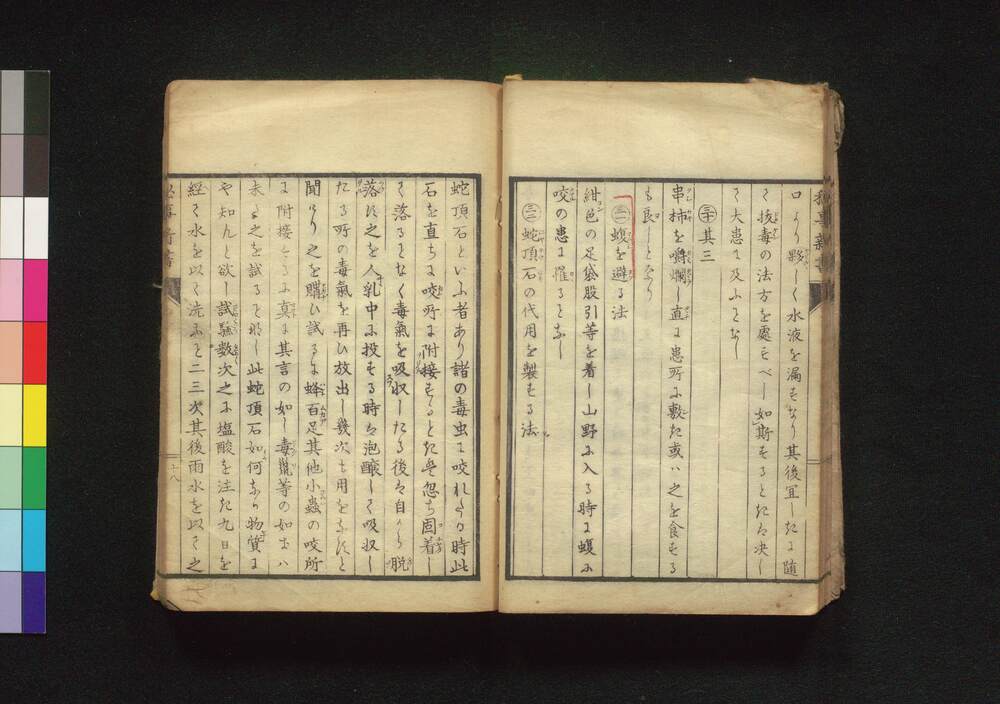 口より夥しく水液を漏すなり其後宜したに随
て抜毒の法方を處すべし如斯するときは决し
て大患に及ふことなし
㉚其三
串柿を嚼爛し直に患所に敷た或ハ之を食する
も良しとなり
㉛蝮を避る法
紺色の足袋股引等を着し山野に入る時は蝮に
咬の患に罹ることなし
㉜蛇頂石の代用を製する法
蛇頂石といふ者あり諸の毒虫に咬れたる時此
石を直ちに咬所に附接するときは忽ち固着し
て落ることなく毒氣を吸収したる後は自から脱
落す之を人乳中に投する時は泡醸して吸収し
たる所の毒氣を再ひ放出し幾次も用をなすと
聞けり之を購ひ試るに蜂百足其他小蟲の咬所
に附接するに真に其言の如し毒蛇等の如きハ
未た之を試ることなし此蛇頂石如何なる物質に
や知んと欲し試験数次之に塩酸を注た九日を
経て水を以て洗ふこと二三次其後雨水を以て之